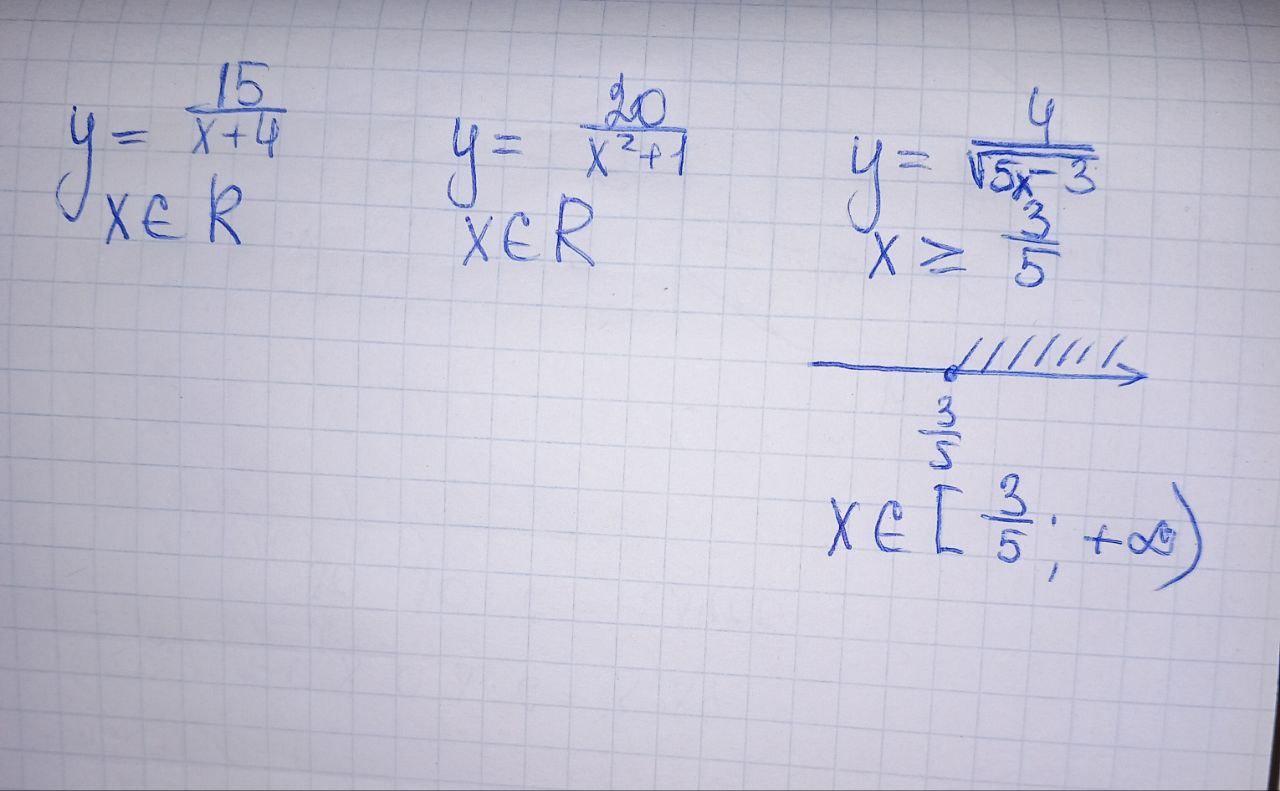 y = 15/(x+4)
x ∈ R
y = 20/(x²+1)
x ∈ R
y = 4/√(5x-3)
x ≥ 3/5
3/5
x ∈ [3/5; +∞)